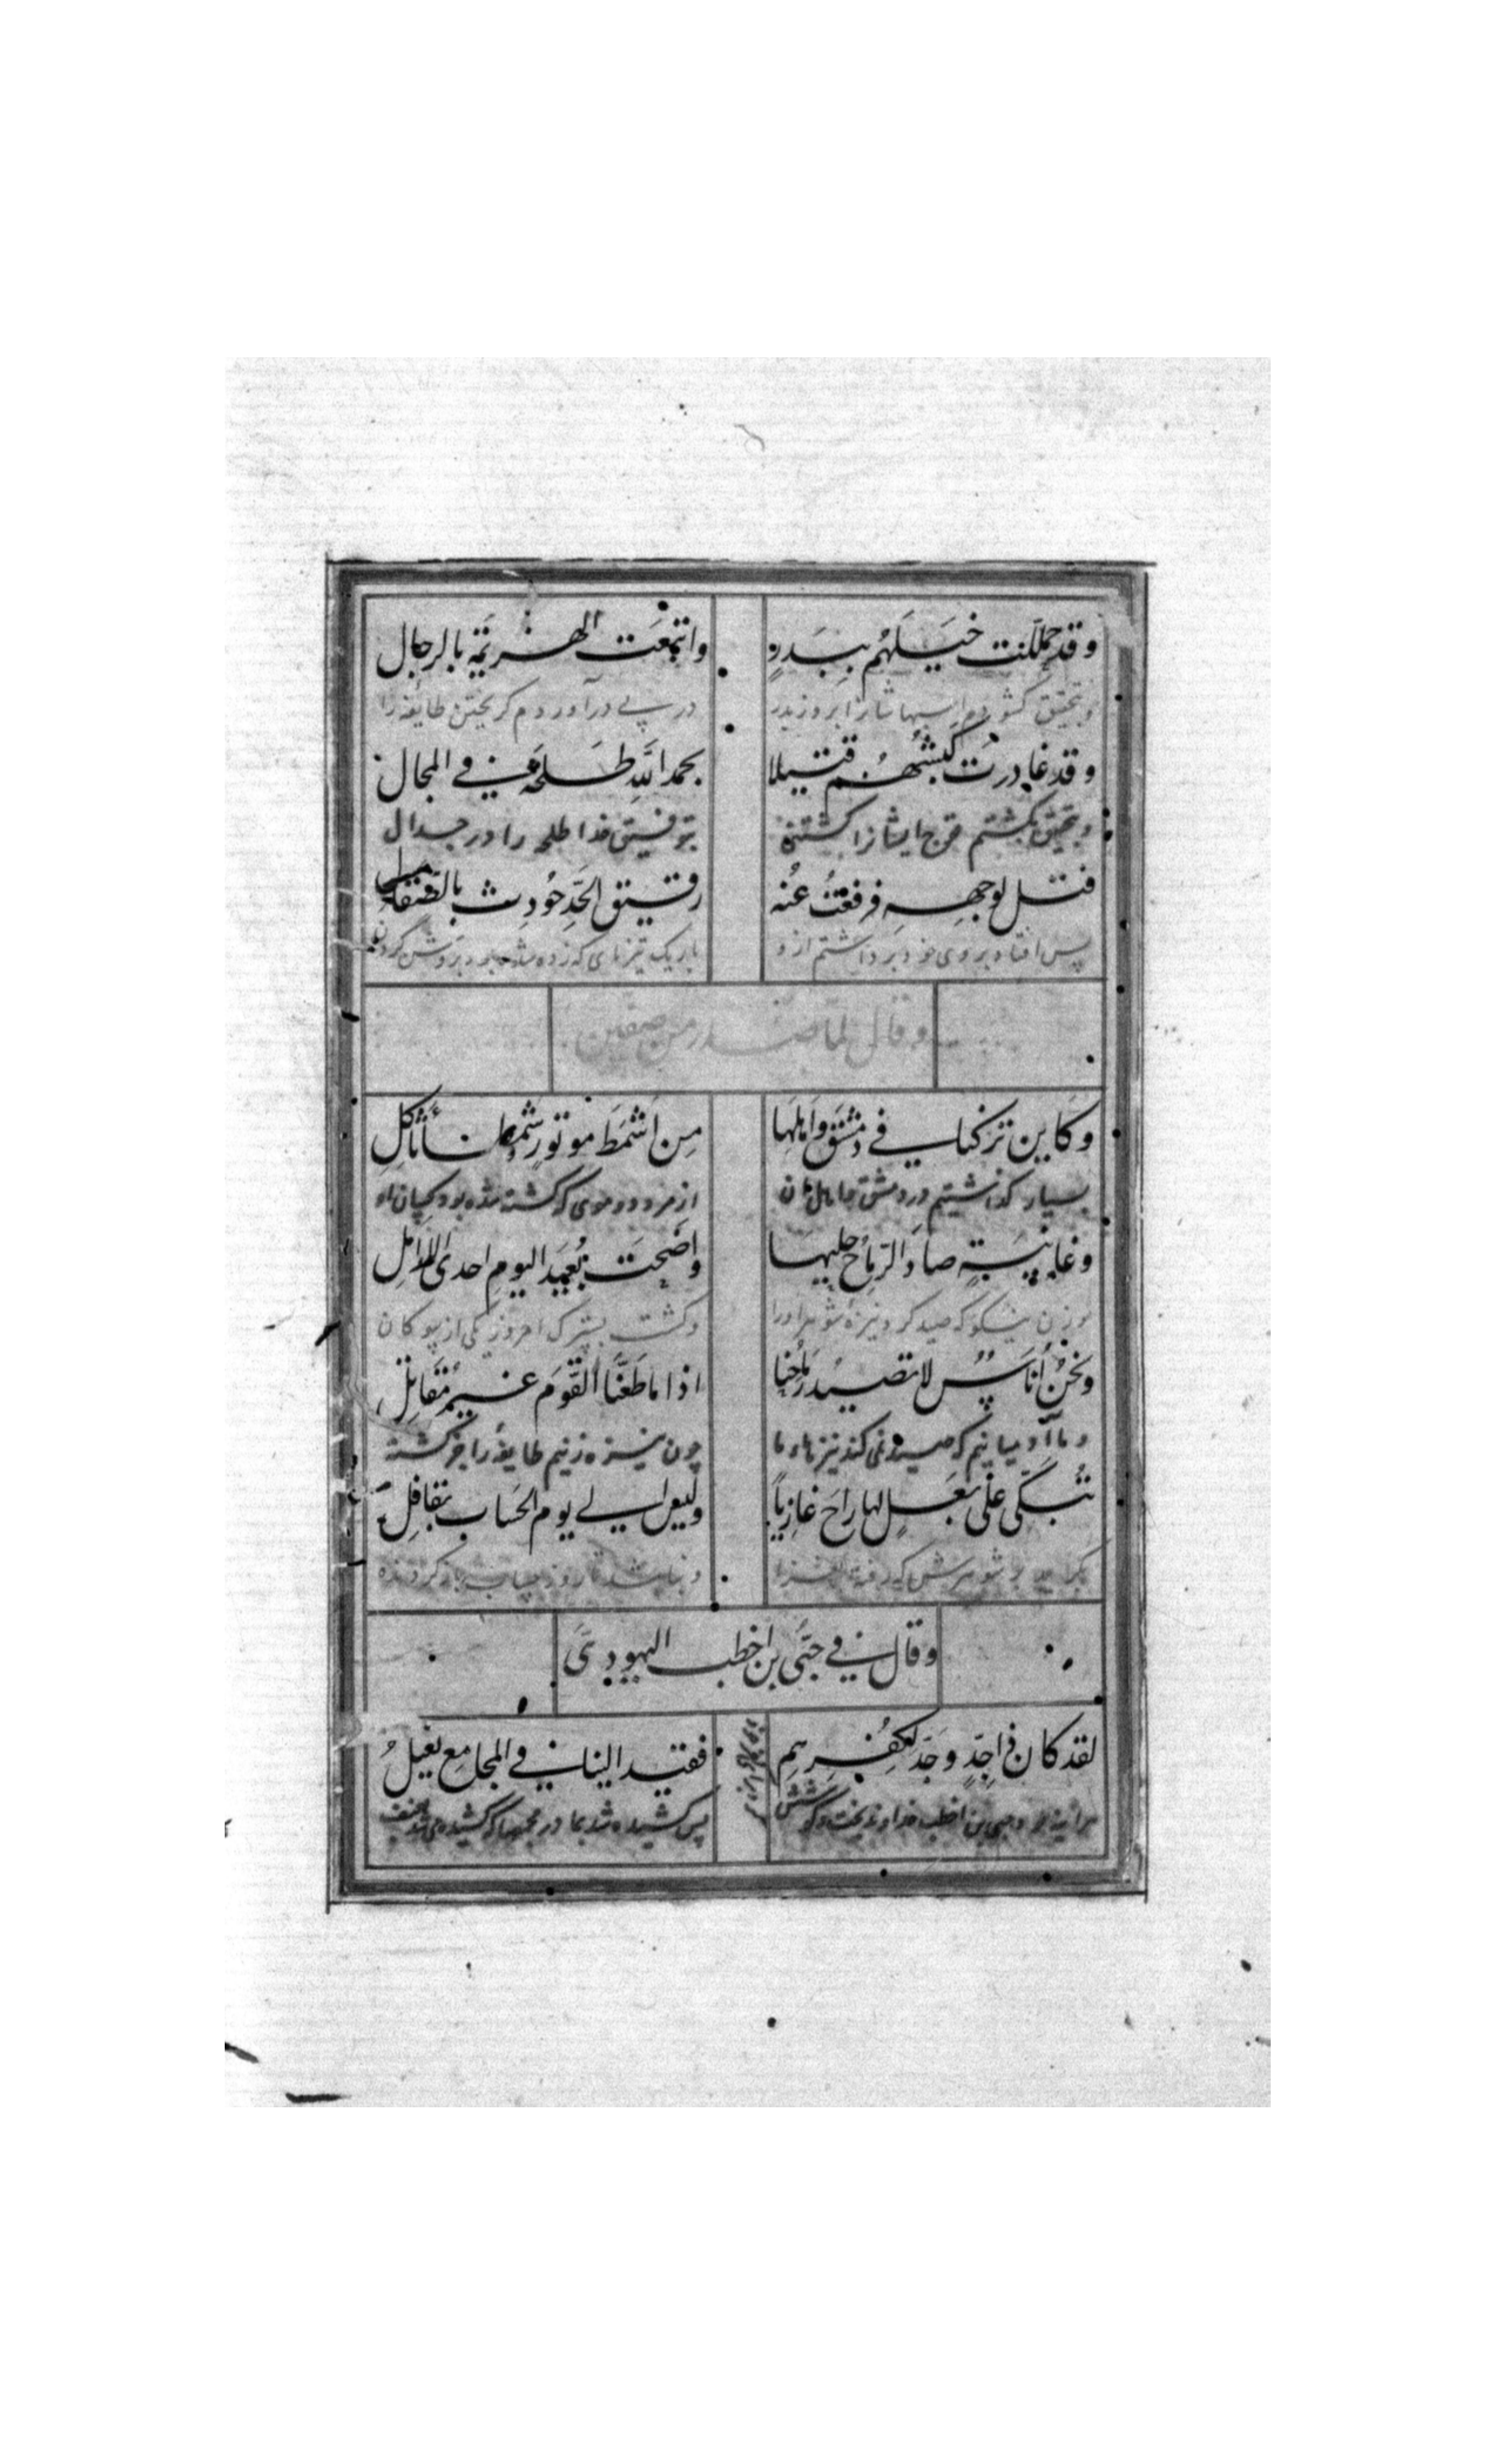 وقد حملنت خيلهم ببدرٍ واتبعت الهزيمة بالرجال
بتحقيق در پی درآوردم گریختن طایفه را
وقد غادرت كبشهم قتيلا بحمد اللّه طلحة في المجال
کشتم قوچ ایشانرا کشتنی بتوفیق خدا طلحه را در جدال
فتل لوجهه فرفعت عنه رقيق الحدّ حودث بالصقال
پس افتاد بروی خود برداشتم ازو باریک تیزنای که زده شده بود
وقال لما صدر من صفين
وكاين تركنا في دمشق واهلها من اشمط موتور وشمطا ثاكل
بسیار گذاشتیم در دمشق و اهل آن از مرد دو موی که کشته شده بود
وغانيةٍ صاد الرماح حليلها واضحت بُعيد اليوم احدى الارامل
زن نیکو که صید کرد نیزه شوهر او را و گشت امروز یکی از بیوگان
ونحن اُناسٌ لا تصيد رماحنا اذا ما طعنّا القوم غير مقاتل
و ما آدمیانیم که صید نمی‌کند نیزهاء ما چون نیزه زنیم طایفه را جز
تبكّي على بعلٍ لها راح غازياً وليس الى يوم الحساب بقافل
شوهرش که رفته و نباشد تا روز حساب باز گردنده
وقال في حيّي بن اخطب اليهودي
لقد كان ذا جدٍّ وجدّ لكفرهم فقيد الينا في المجامع يعتل
حی بن اخطب خداوند بخت و کوشش پس کشیده شد بما در مجمعها که کشیده می‌شد